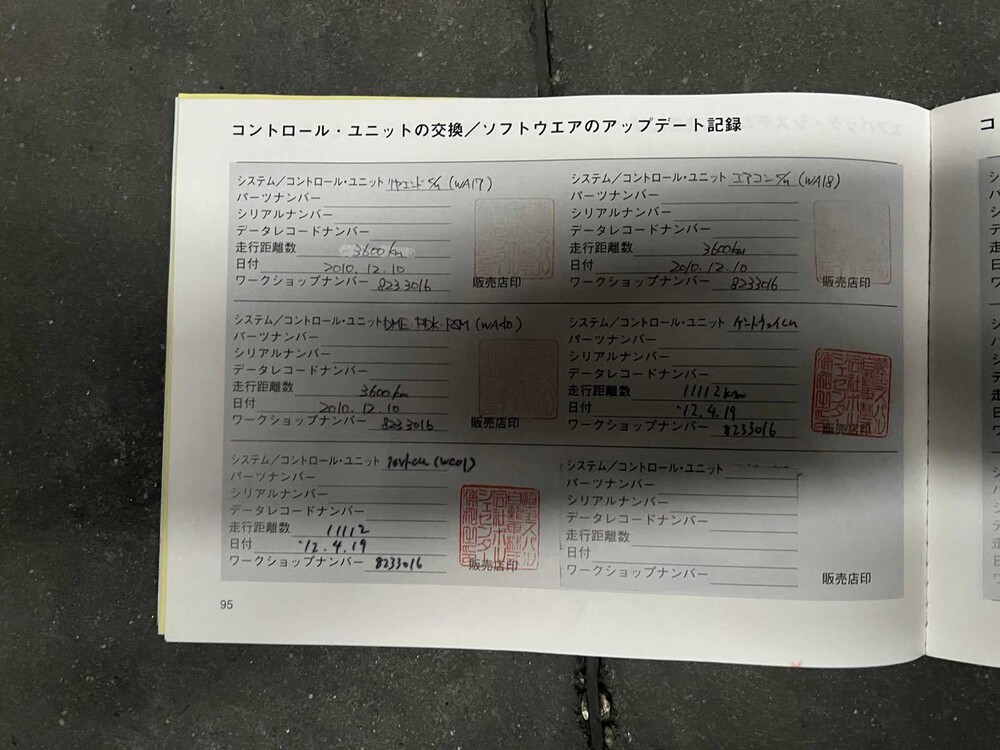 コントロール・ユニットの交換／ソフトウエアのアップデート記録
システム／コントロール・ユニット リヤエンド (WA17)
パーツナンバー
シリアルナンバー
データレコードナンバー
走行距離数 3600km
日付 2010.12.10
ワークショップナンバー 8233016
販売店印
システム／コントロール・ユニット エアコン (WA18)
パーツナンバー
シリアルナンバー
データレコードナンバー
走行距離数 3600km
日付 2010.12.10
ワークショップナンバー 8233016
販売店印
システム／コントロール・ユニット DME PDK. PSM (WA40)
パーツナンバー
シリアルナンバー
データレコードナンバー
走行距離数 3600km
日付 2010.12.10
ワークショップナンバー 8233016
販売店印
システム／コントロール・ユニット ゲートウェイCU
パーツナンバー
シリアルナンバー
データレコードナンバー
走行距離数 11112km
日付 '12.4.19
ワークショップナンバー 8233016
販売店印
システム／コントロール・ユニット (WC01)
パーツナンバー
シリアルナンバー
データレコードナンバー
走行距離数 11112
日付 '12.4.19
ワークショップナンバー 8233016
販売店印
システム／コントロール・ユニット
パーツナンバー
シリアルナンバー
データレコードナンバー
走行距離数
日付
ワークショップナンバー
販売店印
95
コ